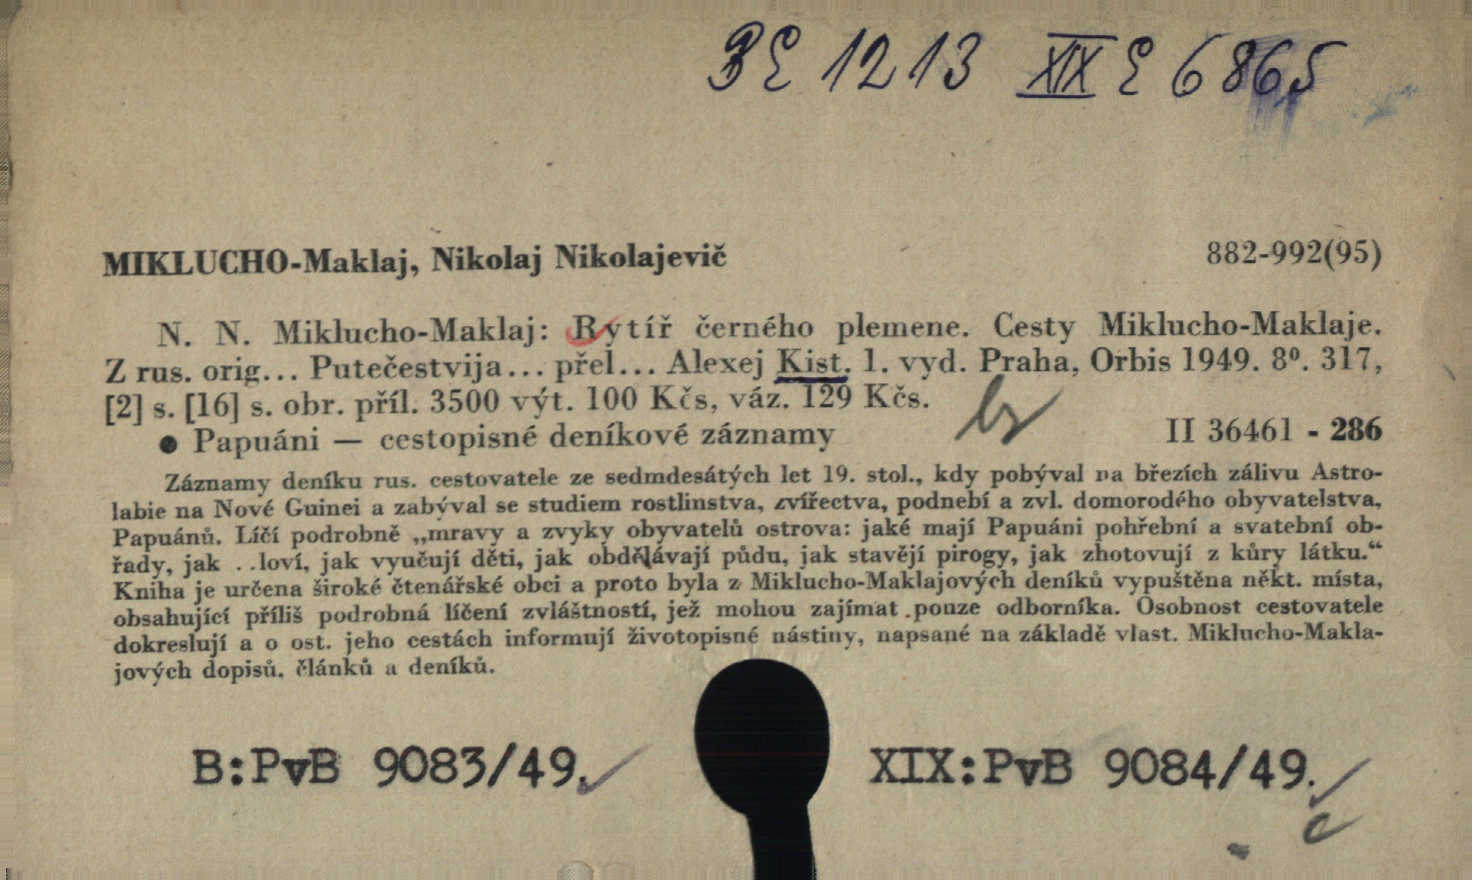 BE 1213 XIX E 6865
MIKLUCHO-Maklaj, Nikolaj Nikolajevič 882-992(95)
N. N. Miklucho-Maklaj: Rytíř černého plemene. Cesty Miklucho-Maklaje.
Z rus. orig... Putečestvija... přel... Alexej Kist. 1. vyd. Praha, Orbis 1949. 8⁰. 317,
[2] s. [16] s. obr. příl. 3500 výt. 100 Kčs, váz. 129 Kčs.
● Papuáni — cestopisné deníkové záznamy II 36461 - 286
Záznamy deníku rus. cestovatele ze sedmdesátých let 19. stol., kdy pobýval na březích zálivu Astro-
labie na Nové Guinei a zabýval se studiem rostlinstva, zvířectva, podnebí a zvl. domorodého obyvatelstva,
Papuánů. Líčí podrobně „mravy a zvyky obyvatelů ostrova: jaké mají Papuáni pohřební a svatební ob-
řady, jak . .loví, jak vyučují děti, jak obdělávají půdu, jak stavějí pirogy, jak zhotovují z kůry látku.“
Kniha je určena široké čtenářské obci a proto byla z Miklucho-Maklajových deníků vypuštěna někt. místa,
obsahující příliš podrobná líčení zvláštností, jež mohou zajímat pouze odborníka. Osobnost cestovatele
dokreslují a o ost. jeho cestách informují životopisné nástiny, napsané na základě vlast. Miklucho-Makla-
jových dopisů, článků a deníků.
B:PvB 9083/49. XIX:PvB 9084/49.
c